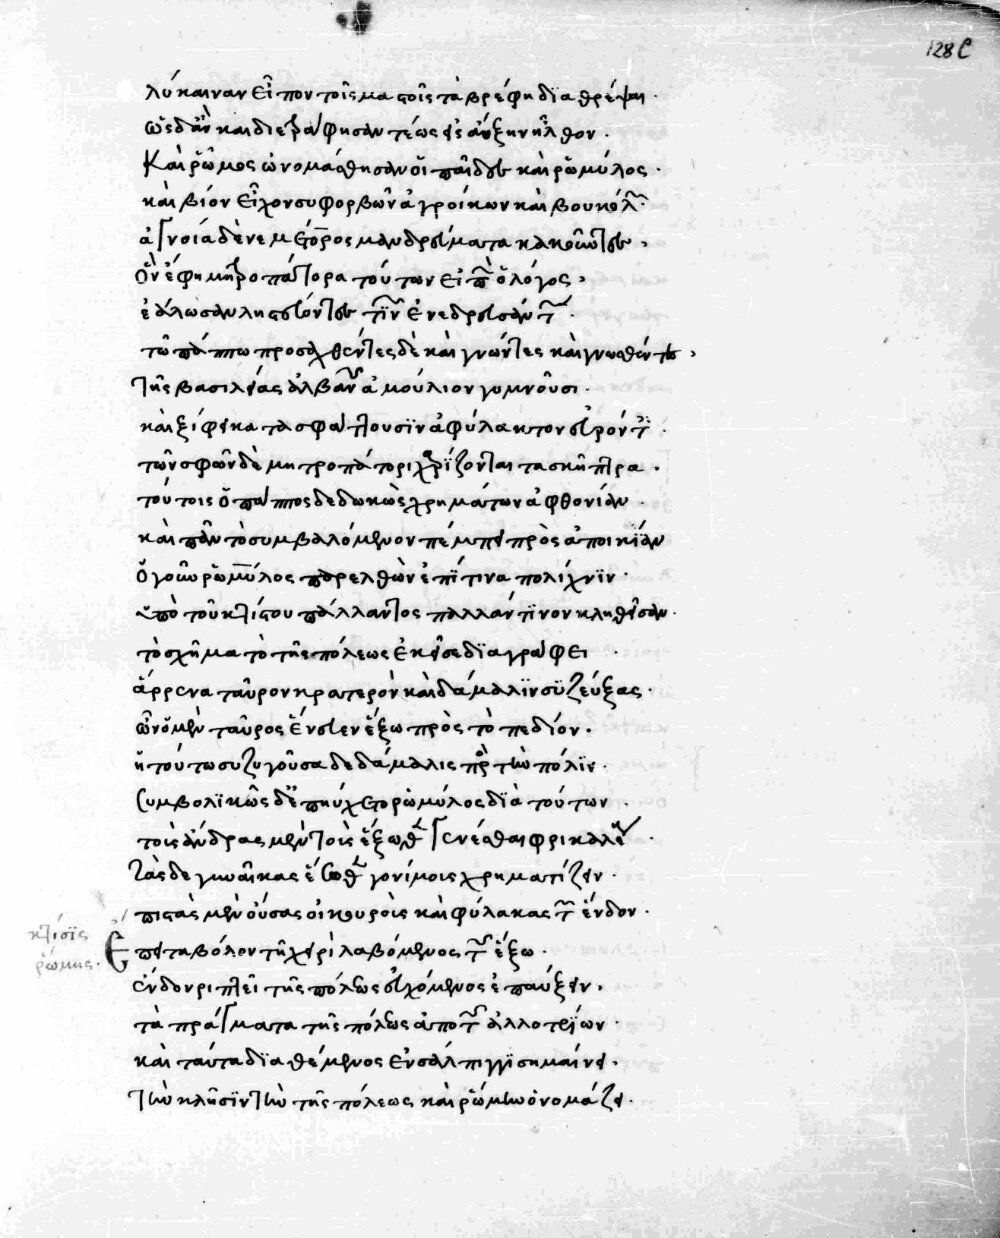 128 C
λύκαιναν εἶπον τοῖς μαστοῖς τὰ βρέφη διαθρέψαι.
ὡς δ' ἂν καὶ διετράφησαν τέως εἰς αὔξην ἦλθον.
Καὶ ῥῶμος ὠνομάσθησαν οἱ παῖδες καὶ ῥωμύλος.
καὶ βίον εἶχον συφορβῶν ἀγροίκων καὶ βουκόλων.
ἀγνοίᾳ δὲ νεμέτορος μανδρεύματα κακοῦντες,
ὃν ἔφημεν μητροπάτορα τούτων εἰπεῖν ὁ λόγος,
ἑάλωσαν λῃστεύοντες τισὶν ἐνεδρευσάντων.
τῶ πάππω προσαχθέντες δὲ καὶ γνώντες καὶ γνωσθέντες,
τῆς βασιλείας ἀλβανῶν ἀμούλιον γυμνοῦσι.
καὶ ξίφει κατασφάττουσιν ἀφύλακτον εὑρόντες.
τῶν σφῶν δὲ μητροπάτορι χαρίζονται τὰ σκῆπτρα.
τούτοις ὁ πάππος δεδωκὼς χρημάτων ἀφθονίαν.
καὶ πᾶν τὸ συμβαλόμενον πέμπει πρὸς ἀποικίαν
ὁ γοῦν ῥωμύλος παρελθὼν ἐπί τινα πολίχνιν.
ὑπὸ τοῦ κτίστου πάλλαντος παλλάντινον κληθεῖσαν.
τὸ σχῆμα τὸ τῆς πόλεως ἐκεῖσε διαγράφει
ἄρρενα ταῦρον κρατερὸν καὶ δάμαλιν συζεύξας.
ὧν ὁ μὲν ταῦρος ἔνευεν ἔξω πρὸς τὸ πεδίον.
ἡ τούτω συζυγοῦσα δὲ δάμαλις πρὸς τὴν πόλιν.
συμβολικῶς δ' ἐπηύχετο ῥωμύλος διὰ τούτων.
τοὺς ἄνδρας μὲν τοῖς ἔξωθεν γενέσθαι φρικαλέους.
τὰς δὲ γυναῖκας ἔσωθεν γονίμοις χρηματίζειν.
πιστὰς μὲν οὔσας οἰκουροὺς καὶ φύλακας τῶν ἔνδον.
κτίσις
ῥώμης.
Ἔπειτα βόλον τῇ χειρὶ λαβόμενος τῶν ἔξω.
ἔνδον ῥιπτεῖ τῆς πόλεως εὐχόμενος ἐπαύξειν.
τὰ πράγματα τῆς πόλεως ἀπὸ τῶν ἀλλοτρίων.
καὶ ταῦτα διαθέμενος ἐν σάλπιγγι σημαίνει.
τὴν κλῆσιν τὴν τῆς πόλεως καὶ ῥώμην ὀνομάζει.